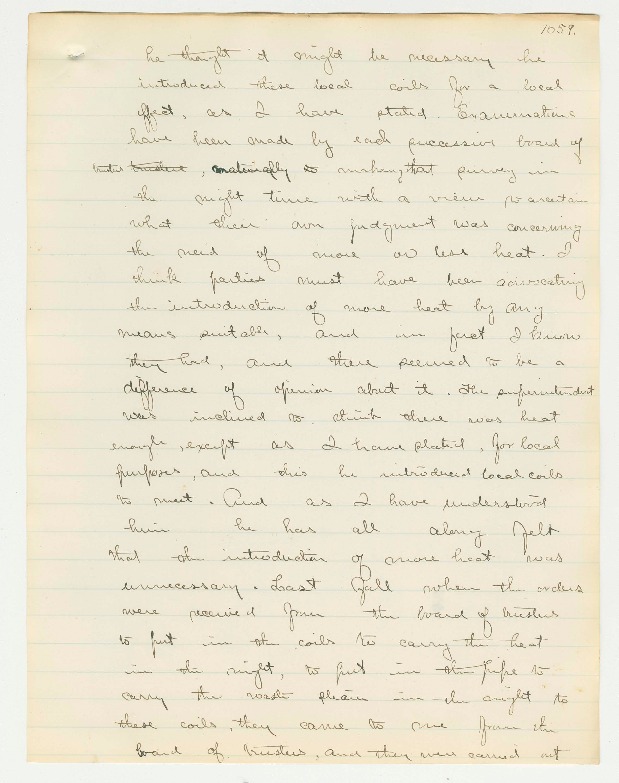 1059.
he thought it might be necessary he
introduced these local coils for a local
effect, as I have stated. Examinations
have been made by each successive board of
trustees, making that survey in
the night time with a view to ascertain
what their own judgment was concerning
the need of more or less heat. I
think parties must have been advocating
the introduction of more heat by any
means suitable, and in fact I know
they had, and there seemed to be a
difference of opinion about it. The superintendent
was inclined to think there was heat
enough, except as I have stated, for local
purposes, and this he introduced local coils
to meet. And as I have understood
him he has all along felt
that the introduction of more heat was
unnecessary. Last fall when the orders
were received from the board of trustees
to put in the coils to carry the heat
in the night, to put in the pipe to
carry the waste steam in the night to
these coils, they came to me from the
board of trustees, and they were carried out